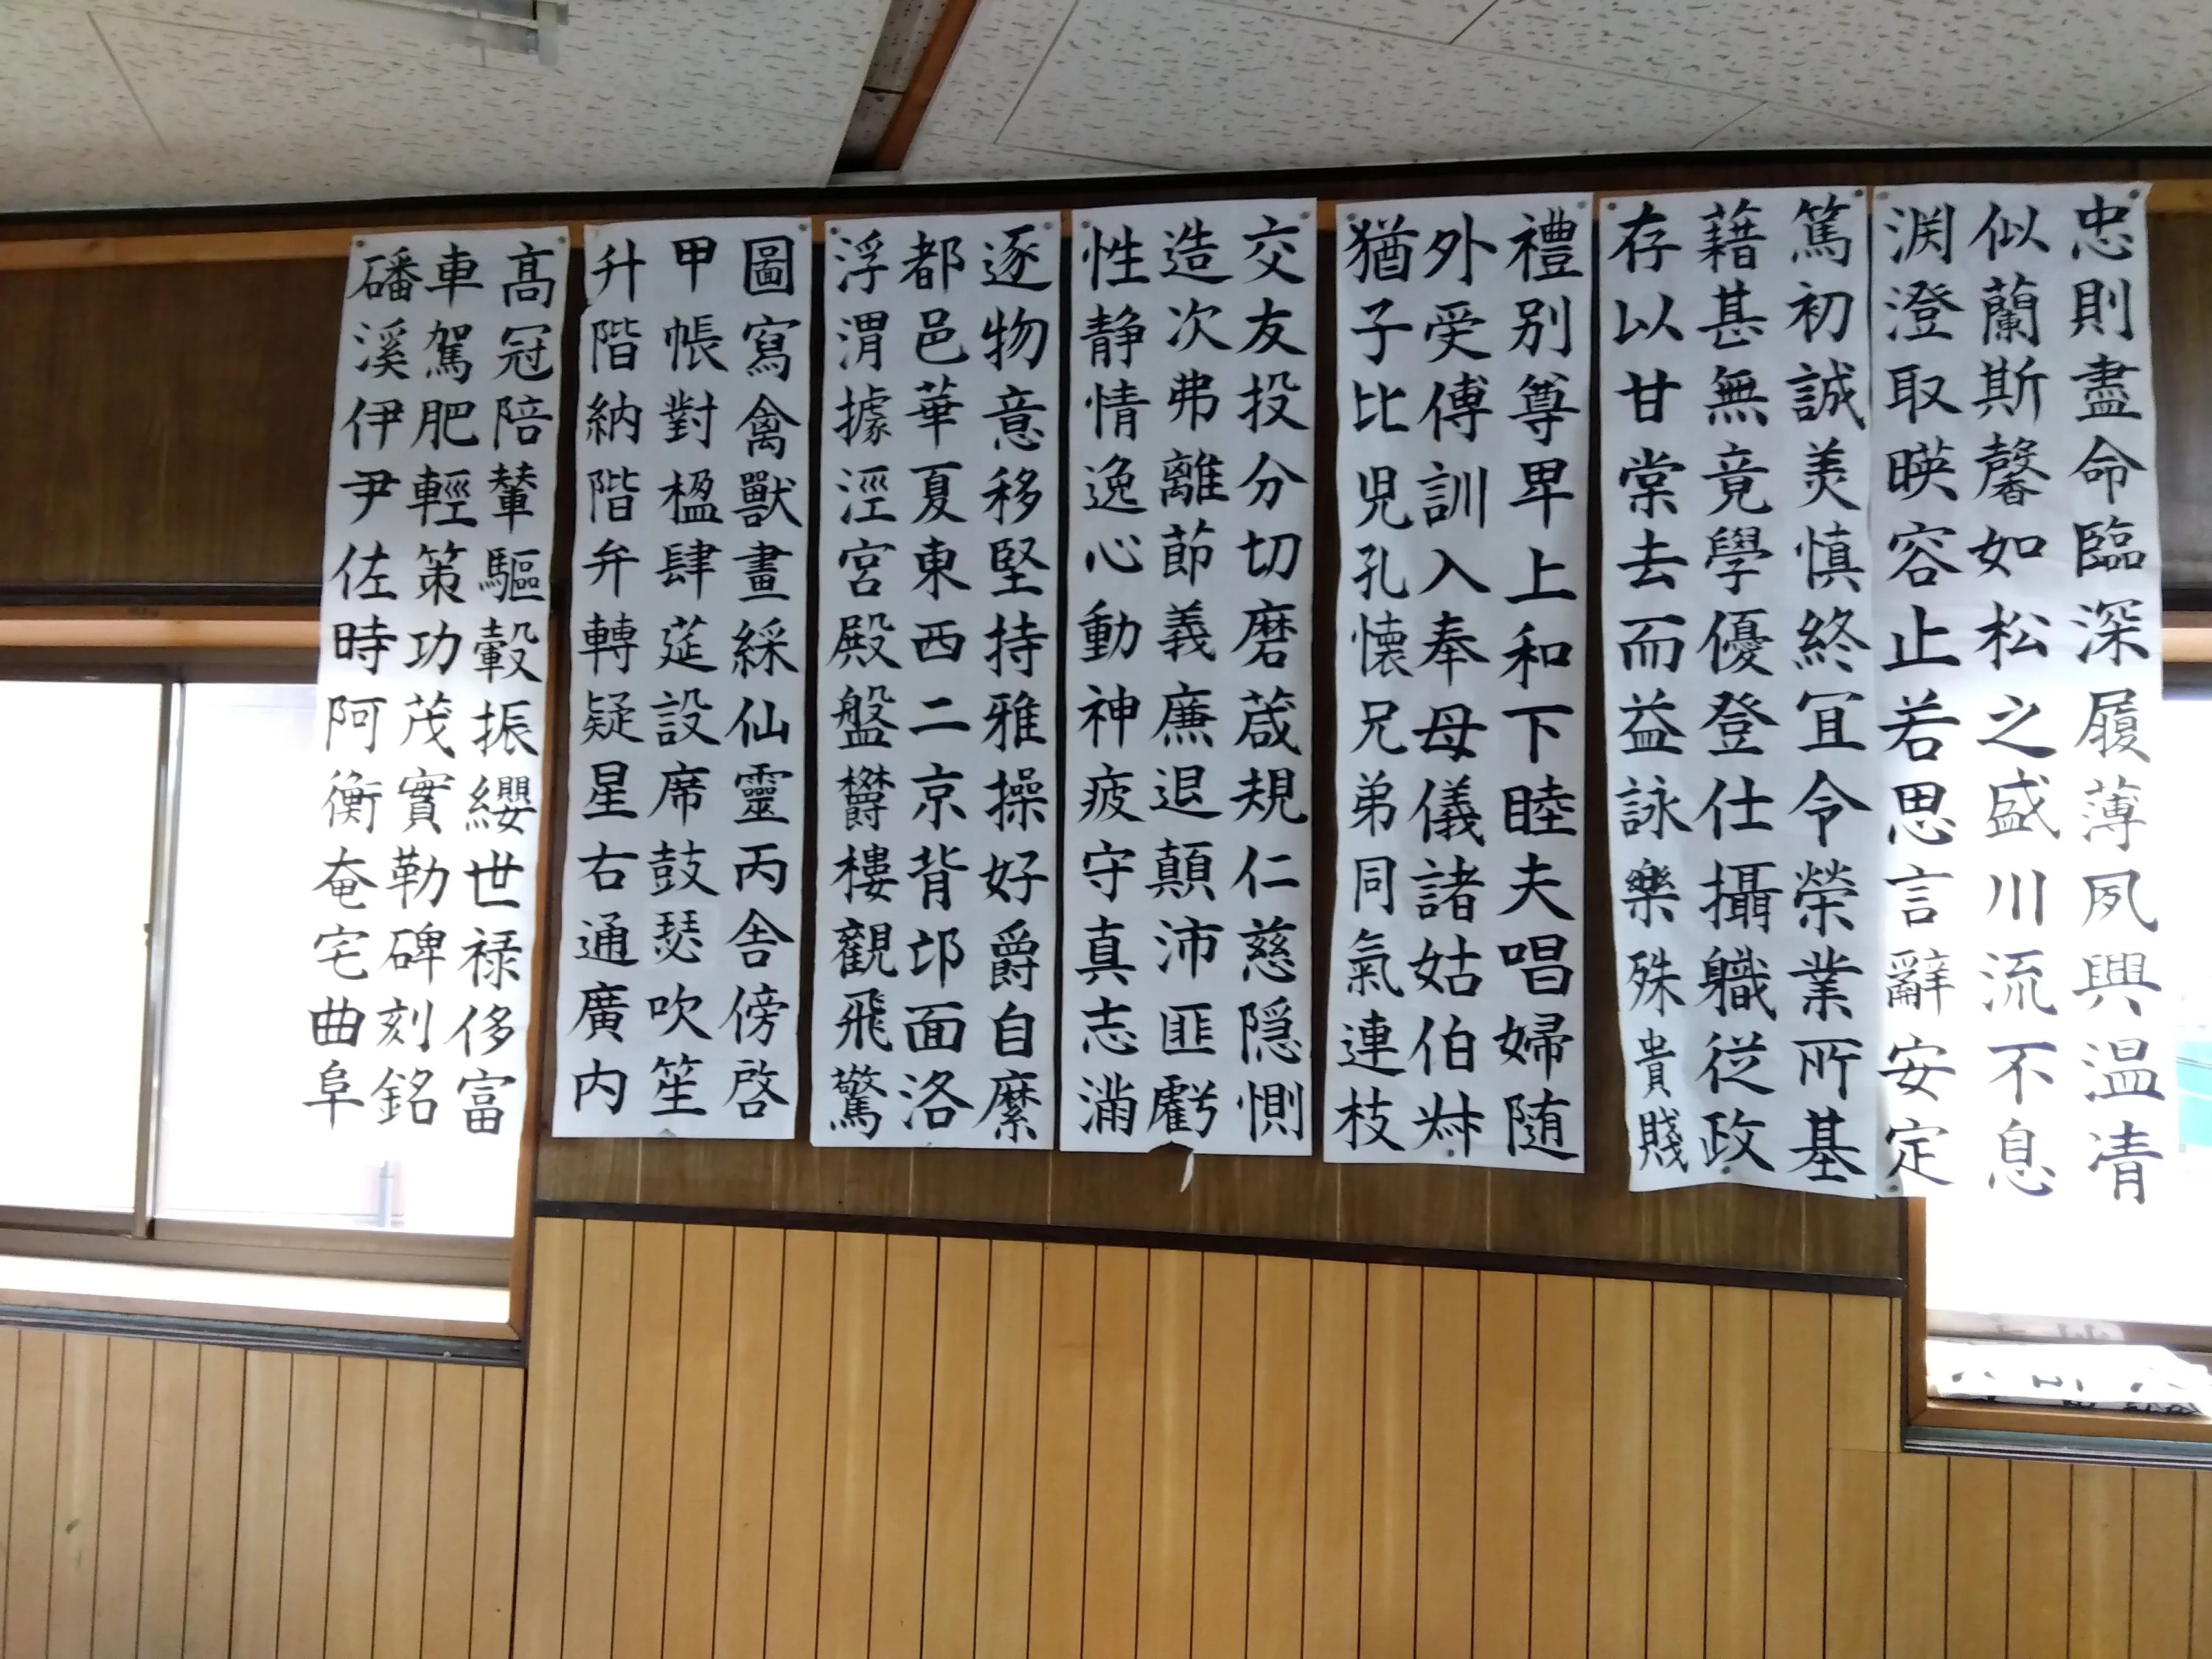 忠則盡命臨深履薄夙興温凊
似蘭斯馨如松之盛川流不息
渕澄取暎容止若思言辭安定
篤初誠羙慎終冝令榮業所基
藉甚無竟學優登仕攝職従政
存以甘棠去而益詠樂殊貴賤
禮別尊卑上和下睦夫唱婦随
外受傅訓入奉母儀諸姑伯叔
猶子比兒孔懐兄弟同氣連枝
交友投分切磨葴規仁慈隠惻
造次弗離節義廉退顛沛匪虧
性静情逸心動神疲守真志満
逐物意移堅持雅操好爵自縻
都邑華夏東西二京背邙面洛
浮渭據涇宮殿盤欝樓觀飛驚
圖寫禽獸畫綵仙靈丙舎傍啓
甲帳對楹肆莚設席鼓瑟吹笙
升階納階弁轉疑星右通廣内
髙冠陪輦驅轂振纓世禄侈富
車駕肥輕策功茂實勒碑刻銘
磻溪伊尹佐時阿衡奄宅曲阜